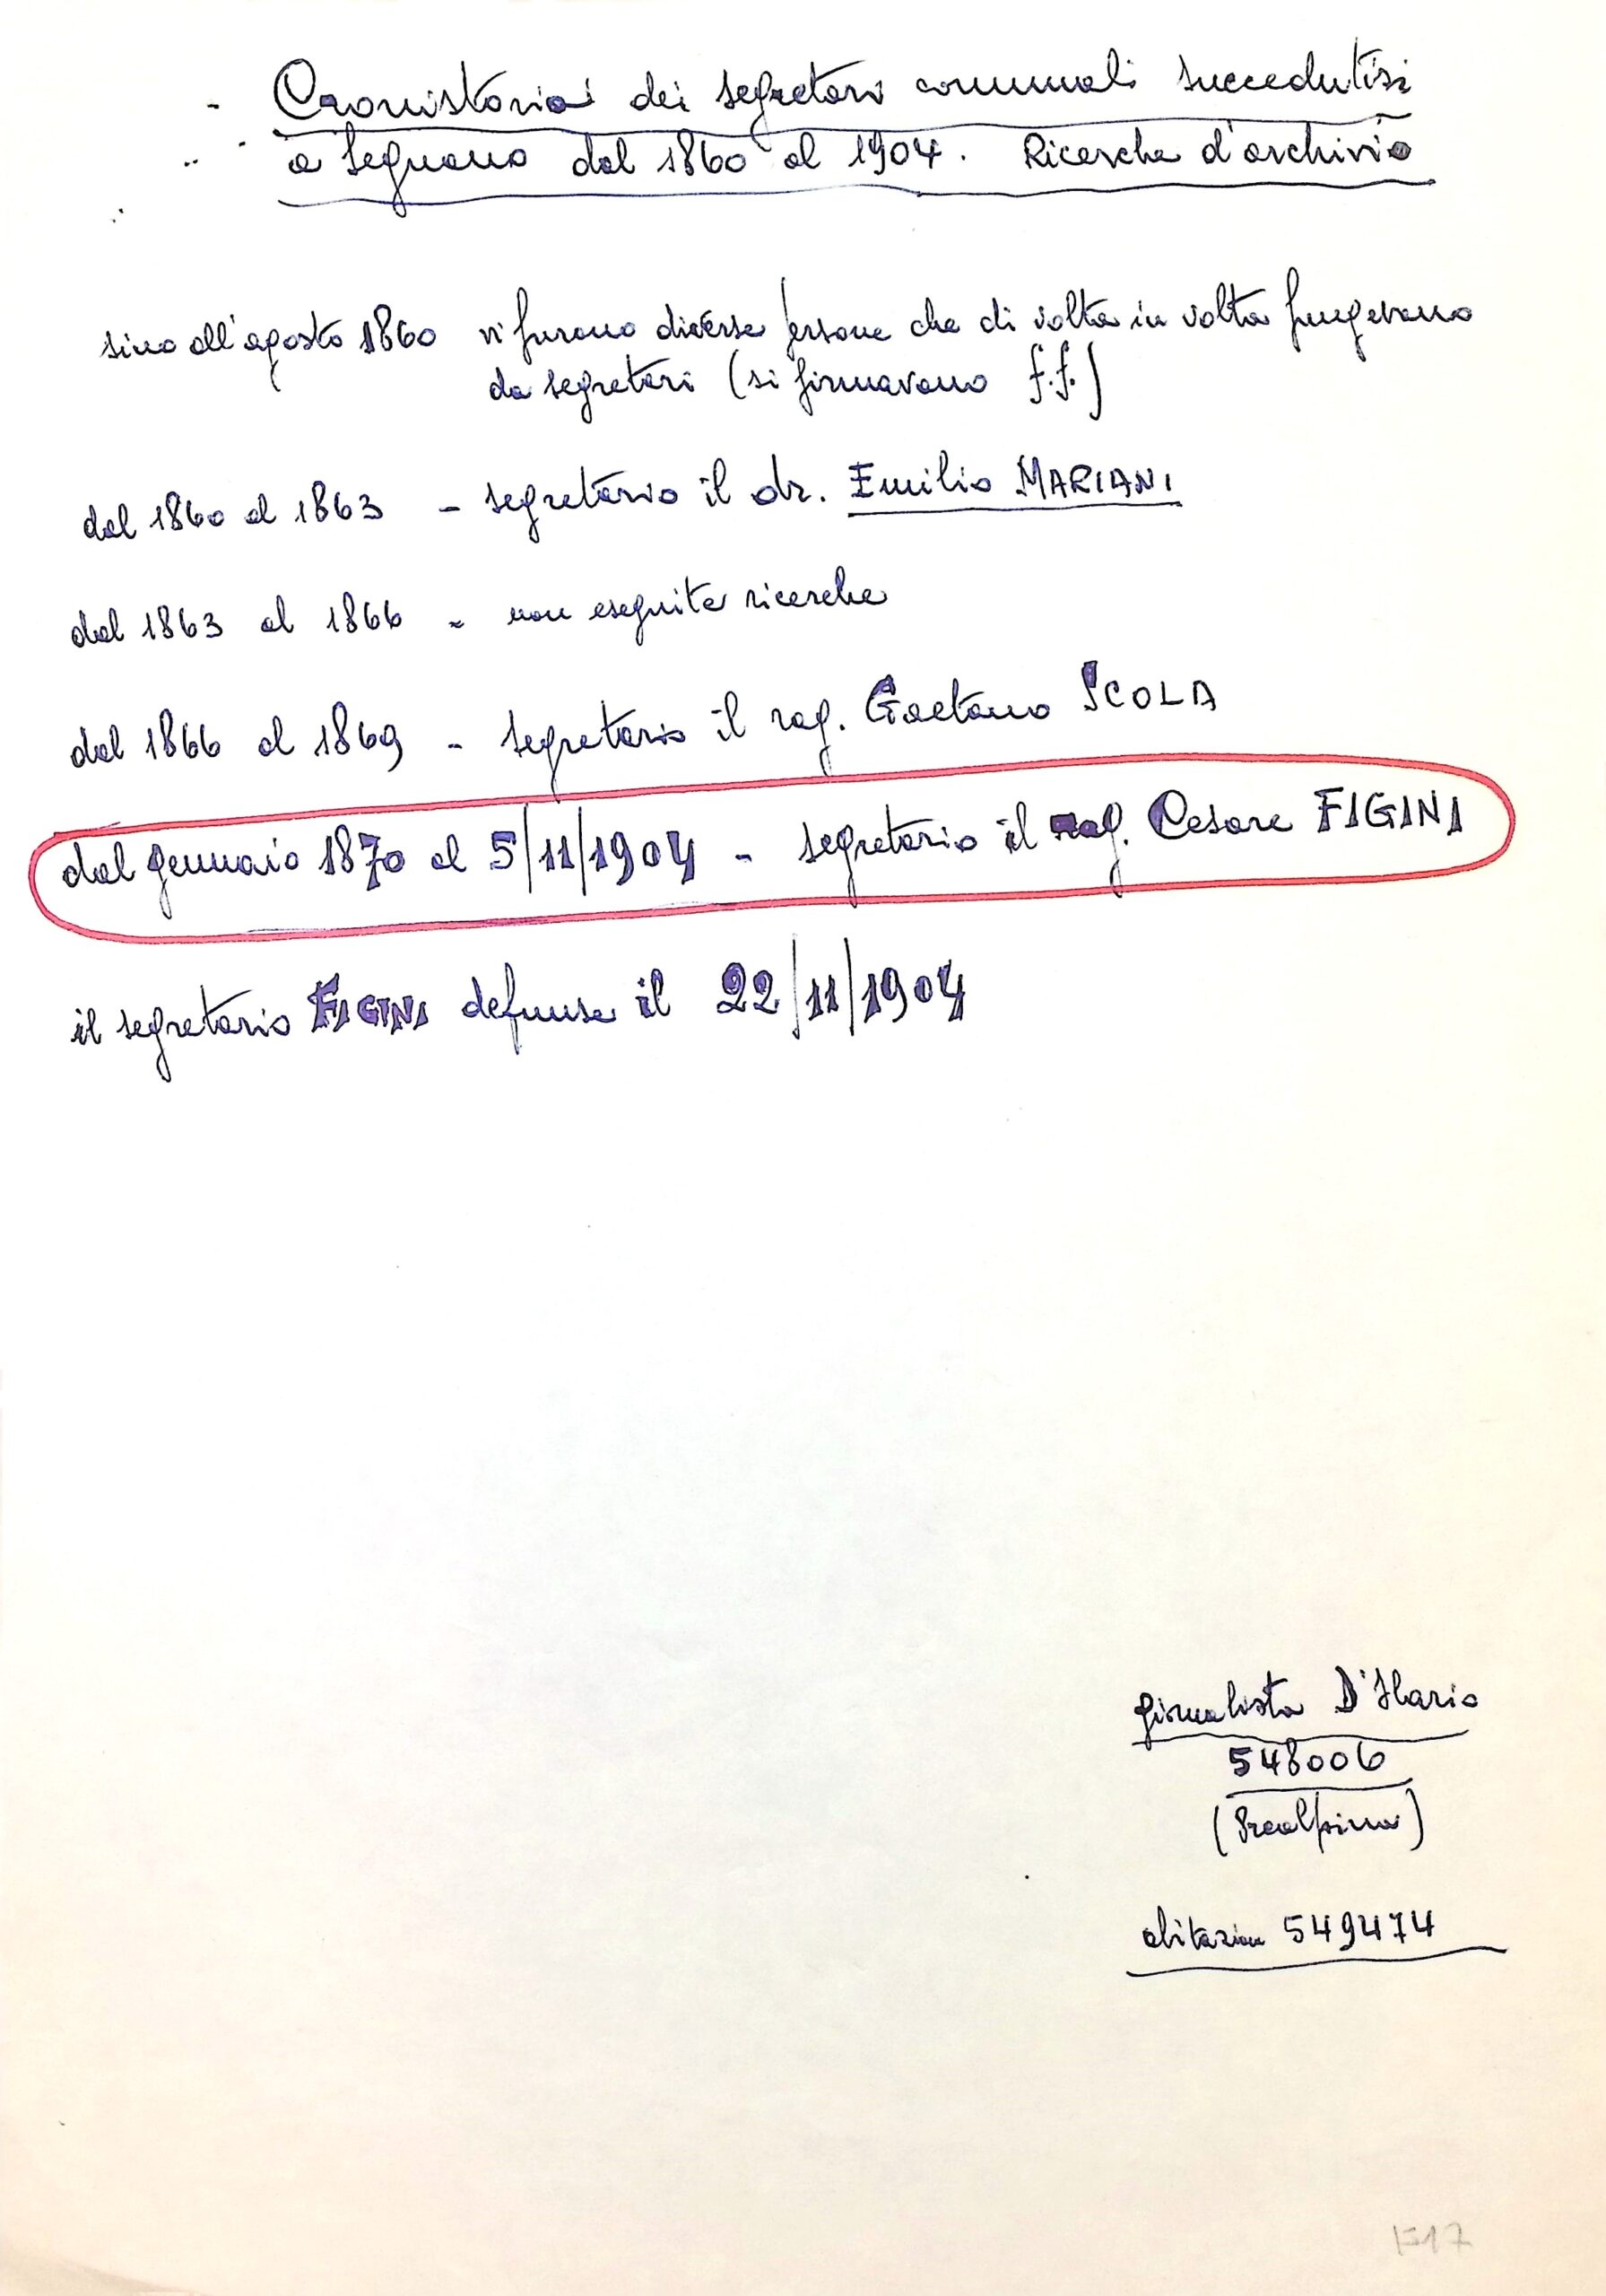 - Cronistoria dei segretari comunali succedutisi
a Legnano dal 1860 al 1904. Ricerche d'archivio
sino all'agosto 1860 vi furono diverse persone che di volta in volta fungevano
da segretari (si firmavano f.f.)
dal 1860 al 1863 - segretario il dr. Emilio MARIANI
dal 1863 al 1866 - non eseguite ricerche
dal 1866 al 1869 - segretario il rag. Gaetano SCOLA
dal gennaio 1870 al 5/11/1904 - segretario il rag. Cesare FIGINI
il segretario FIGINI defunse il 22/11/1904
giornalista D'Ilario
548006
(Prealpina)
abitazione 549474